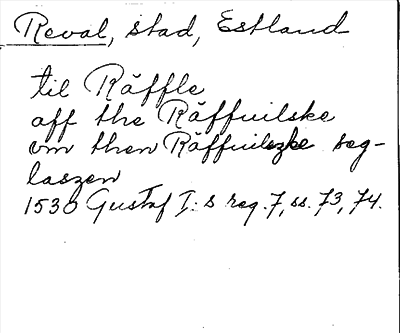 Reval, stad, Estland
til Räffle
aff the Räffuilske
om then Räffuilezke seg-
laszen
1530 Gustaf I:s reg. 7, ss. 73, 74.